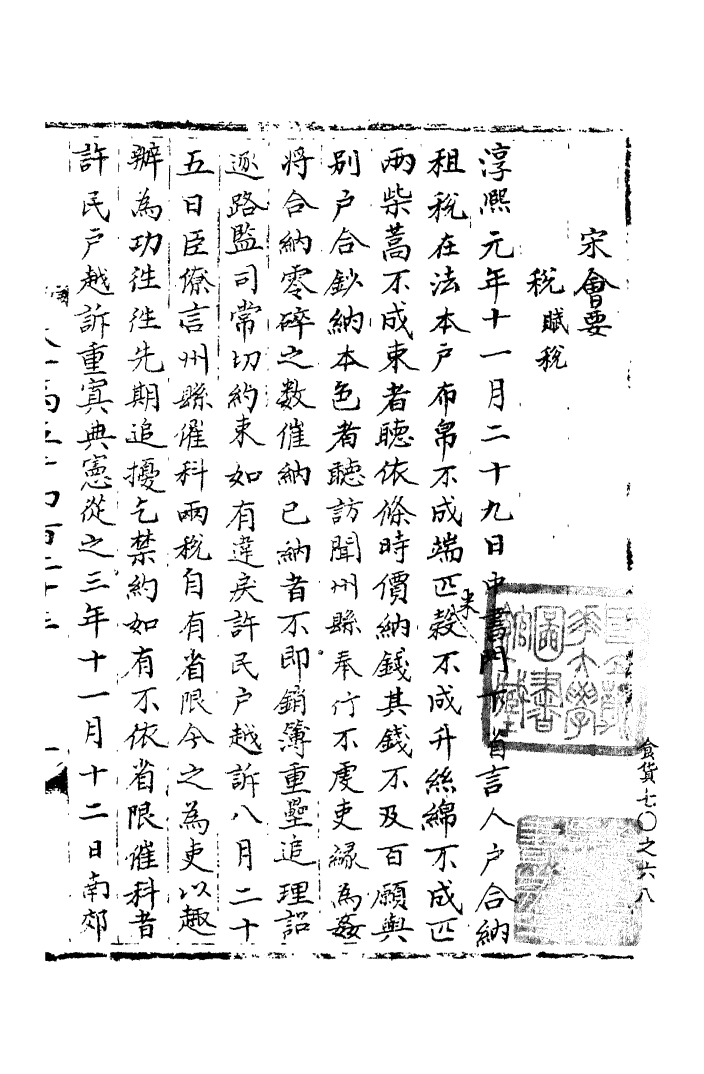 宋會要
税 賦税
淳熙元年十一月二十九日中書門下省言人户合納
租税在法本户布帛不成端匹穀米不成升絲綿不成匹
兩柴蒿不成束者聽依條時價納錢其錢不及百願與
别户合鈔納本色者聽訪聞州縣奉行不虔吏緣為姦
將合納零碎之数催納已納者不即銷簿重疊追理詔
逐路監司常切約束如有違戾許民户越訴八月二十
五日臣僚言州縣催科兩税自有省限今之為吏以趣
辦為功往往先期追擾乞禁約如有不依省限催科者
許民户越訴重寘典憲從之三年十一月十二日南郊
食貨七〇之六八